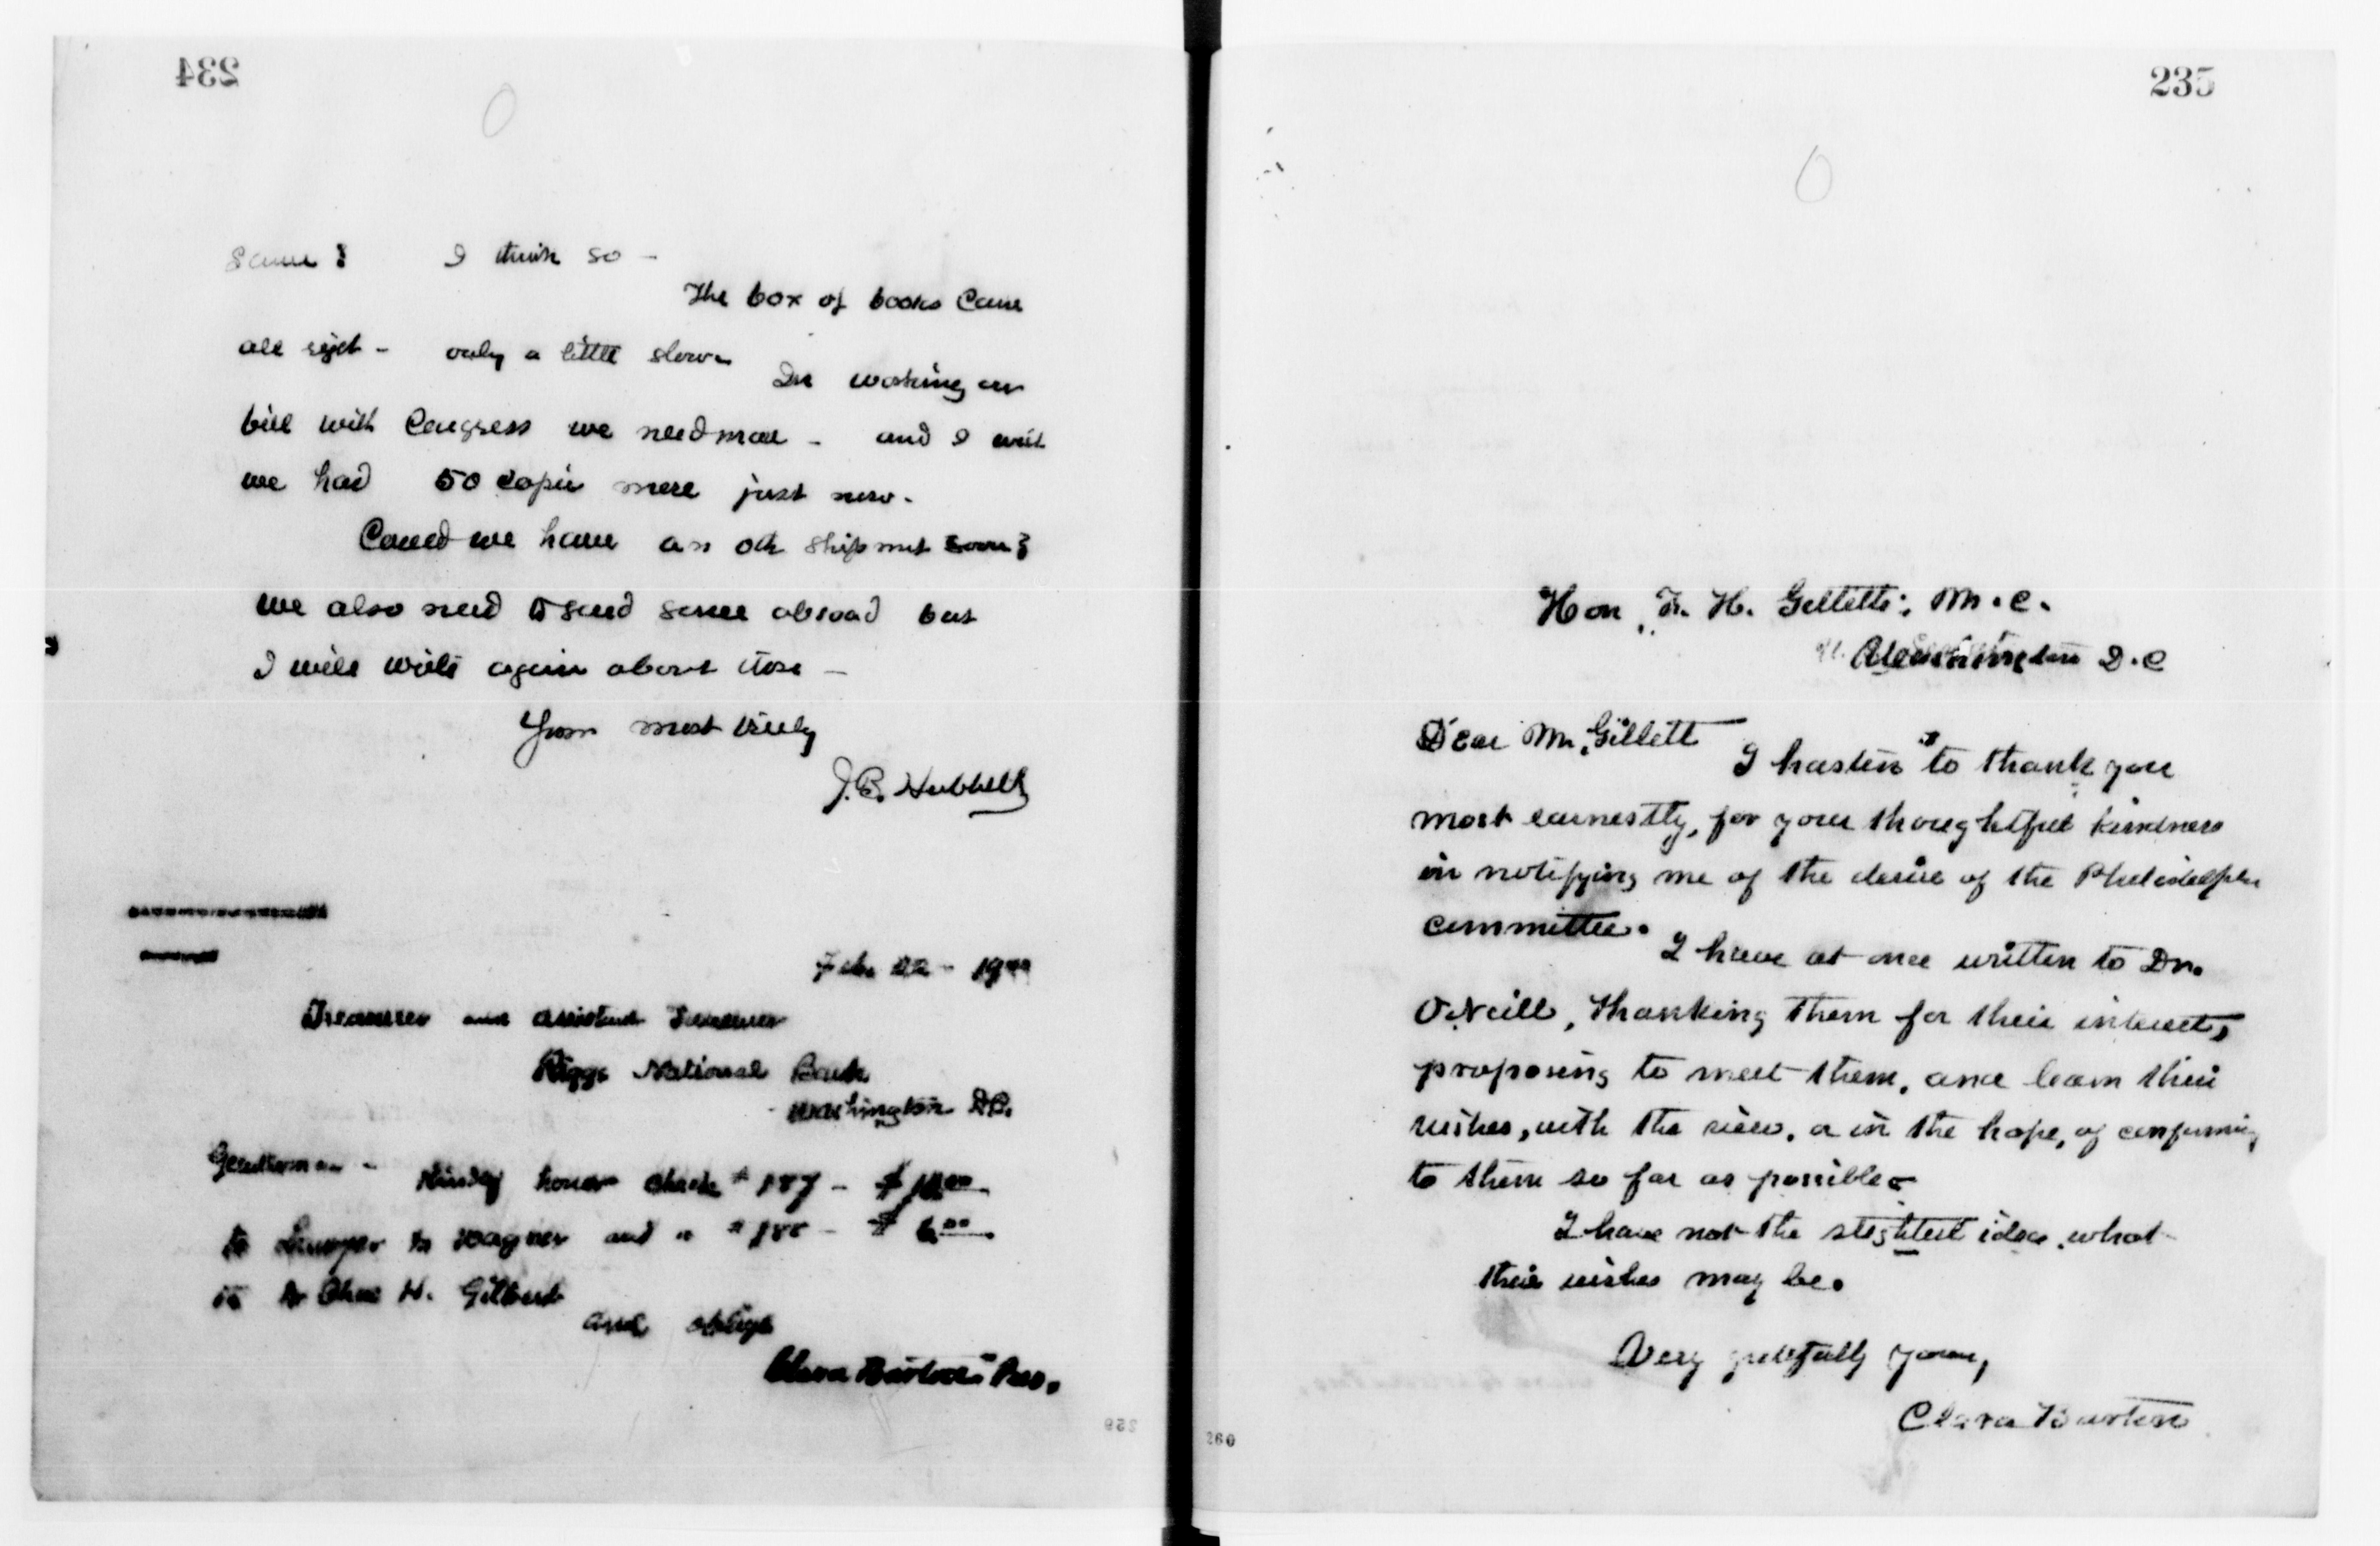 234
same? I think so —
The box of books came
all right - only a little slow -
In working our
bill with Congress we need more - and I wish
we had 50 copies more just now -
Could we have an oth shipmet soon?
We also need to send some abroad but
I will write again about those —
Yours most truly
J. B. Hubbell
Feb. 22 - 1900
Treasurer and assistant Treasurer
Riggs National Bank
Washington D.C.
Gentlemen -
Kindly honor check # 187 - $
to Wagner and " # 188 - $ 6.00
H. Gilbert
and oblige
Clara Barton Pres.
259
235
Hon. F. H. Gillett, M. C.
Washington D. C
Dear Mr. Gillett
I hasten to thank you
most earnestly, for your thoughtful kindness
in notifying me of the desire of the Philadelphia
committee.
I have at once written to Dr.
O'Neill, thanking them for their interest,
proposing to meet them, and learn their
wishes, with the view, or in the hope, of conforming
to them so far as possible -
I have not the slightest idea, what
their wishes may be.
Very gratefully yours,
Clara Barton
260